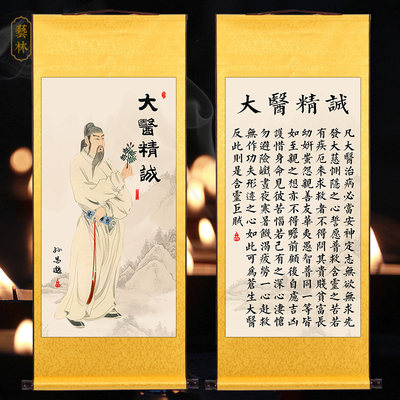 藝林
大醫精誠
孫思邈
大醫精誠
凡大醫治病必當安神定志無欲無求先
發大慈惻隱之心誓愿普救含靈之苦若
有疾厄來求救者不得問其貴賤貧富長
幼妍蚩怨親善友華夷愚智普同一等皆
如至親之想亦不得瞻前顧後自慮吉凶
護惜身命見彼苦惱若己有之深心淒愴
勿避險巇晝夜寒暑饑渴疲勞一心赴救
無作功夫形迹之心如此可為蒼生大醫
反此則是含靈巨賊